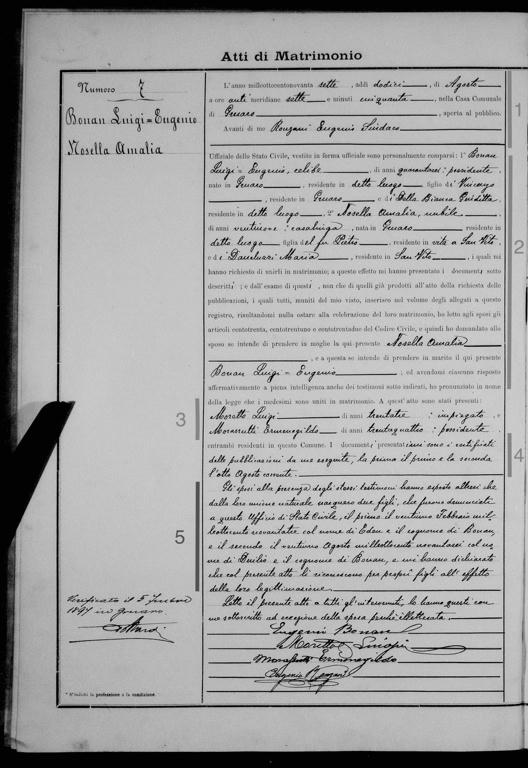 Atti di Matrimonio
Numero 7
Bonan Luigi=Eugenio
Nosella Amalia
L'anno millecottocentonovanta sette, addì dodici, di Agosto
a ore anti meridiane sette e minuti cinquanta, nella Casa Comunale
di, aperta al pubblico.
Avanti di me Ronzani Eugenio Sindaco
Uffiziale dello Stato Civile, vestito in forma uffiziale sono personalmente comparsi: 1° Bonan
Luigi=Eugenio, celibe, di anni quarantasei: possidente
nato in, residente in detto luogo figlio di Vincenzo
, residente in e di Della Bianca Giuditta
residente in detto luogo 2° Nosella Amalia, nubile
di anni: casalinga, nata in residente in
detto luogo figlia del fu Pietro, residente in vita a San Vito
e di Maria, residente in San Vito, i quali mi
hanno richiesto di unirli in matrimonio; a questo effetto mi hanno presentato i documenti sotto
descritti; e dall'esame di questi, non che di quelli già prodotti all'atto della richiesta delle
pubblicazioni, i quali tutti, muniti del mio visto, inserisco nel volume degli allegati a questo
registro, risultandomi nulla ostare alla celebrazione del loro matrimonio, ho letto agli sposi gli
articoli centotrenta, centotrentuno e centotrentadue del Codice Civile, e quindi ho domandato allo
sposo se intende di prendere in moglie la qui presente Nosella Amalia
, e a questa se intende di prendere in marito il qui presente
Bonan Luigi=Eugenio; ed avendomi ciascuno risposto
affermativamente a piena intelligenza anche dei testimoni sotto indicati, ho pronunziato in nome
della legge che i medesimi sono uniti in matrimonio. A quest'atto sono stati presenti:
Moretto Luigi di anni trentatre: impiegato, e
Ermenegildo di anni trentaquattro: possidente
entrambi residenti in questo Comune. I documenti presentati sono i certificati
delle pubblicazioni da me eseguite, la prima il primo e la seconda
l'otto Agosto corrente.
Gli sposi alla presenza degli stessi testimoni hanno esposto altresì che
dalla loro unione naturale nacquero due figli, che furono denunciati
a questo Ufficio di Stato Civile, il primo il ventuno Febbraio mil-
leottocento novantatre col nome di e il cognome di Bonan,
e il secondo il ventuno Agosto milleottocento novantasei col no-
me di e il cognome di Bonan, e mi hanno dichiarato
che col presente atto li riconoscono per propri figli all'effetto
della loro legittimazione.
Letto il presente atto a tutti gl'intervenuti, lo hanno questi con
me sottoscritto ad eccezione della sposa perchè illetterata.
Eugenio Bonan
Moretto
Ermenegildo
Eugenio Ronzani
Verificato il 5
1897 in
* S'indichi la professione o la condizione.
1
2
3
4
5